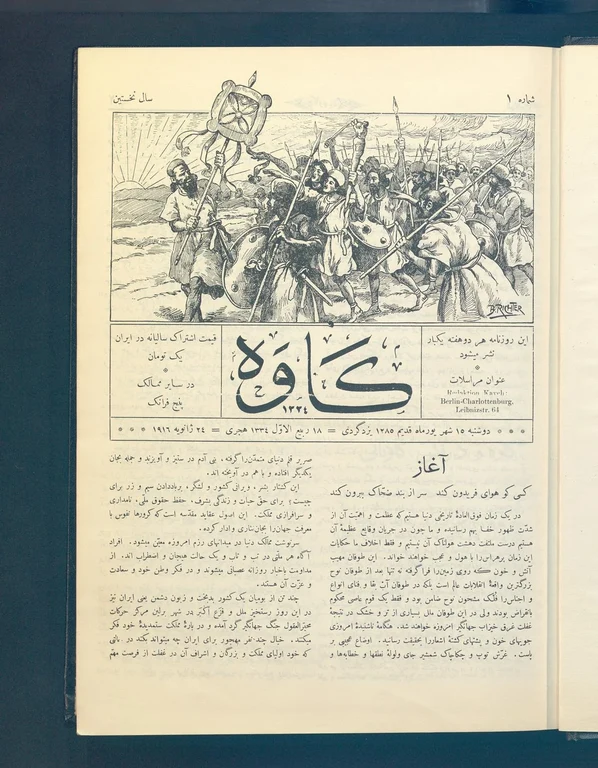 شماره ۱
سال نخستین
B. RICHTER
این روزنامه هر دو هفته یکبار
نشر میشود
*
عنوان مراسلات
Redaktion Kaveh
Berlin-Charlottenburg,
Leibnizstr. 64
کاوه
۱۳۳٤
قیمت اشتراک سالیانه در ایران
یک تومان
*
در سایر ممالک
پنج فرانک
* * * دوشنبه ۱۵ شهریورماه قدیم ۱۲۸۵ یزدگردی = ۱۸ ربیع الاوّل ۱۳۳٤ هجری = ۲٤ ژانویه ۱۹۱٦ * * *
آغاز
کسی کو هوای فریدون کند سر از بند ضحّاک بیرون کند
در یک زمان فوق‌العادهٔ تاریخی دنیا هستیم که عظمت و اهمّیّت آن از
شدّت ظهور خفا بهم رسانیده و ما چون در جریان وقایع عظیمهٔ آن
هستیم درست ملتفت دهشت هولناک آن نیستیم و فقط اخلاف ما حکایات
این زمان پرهراس را با هول و تعجب خواهند خواند. این طوفان مهیب
آتش و خون که روی زمین را فرا گرفته نه تنها بعد از طوفان نوح
بزرگترین واقعهٔ انقلابات عالم است بلکه در طوفان آب بقا و فنای انواع
و اجناس را فُلک مشحون نوح ضامن بود و فقط یک قوم عاصی محکوم
بانقراض بودند ولی در این طوفان ملل بسیاری از تر و خشک در نتیجهٔ
غفلت غرق خیزاب جهانگیر امروزه خواهند شد. هنگامهٔ ناشنیدهٔ امروزی
جویهای خون و پشتهای کشتهٔ اشعار را بحقیقت رسانید. اوضاع عجیبی بر
پاست. غرّش توپ و چکاچاک شمشیر جای ولولهٔ نطقها و خطابه‌ها و
صریر قلم دنیای متمدّن را گرفته، بنی آدم در ستیز و آویزند و جمله بجان
یکدیگر افتاده و با هم در آویخته اند.
این کشتار بشر، ویرانی کشور و لشگر، برباد دادن سیم و زر برای
چیست؟ برای حقّ حیات و زندگی بشرف، حفظ حقوق ملّی، نامداری
و سرافرازی مملکت. این اصول عقاید مقدّسه است که کرورها نفوس با
معرفت جهان را بجان‌نثاری وادار کرده.
سرنوشت ممالک دنیا در میدانهای رزم امروزه معیّن میشود. افراد
آگاه هر ملّتی در تب و تاب و یک حالت هیجان و اضطراب اند. از
مداومت باخبار روزانه عصبانی میشوند و در فکر وطن خود و سعادت
و عزّت آن هستند.
چند تن از بومیان یک کشور بدبخت و زبون دشمن یعنی ایران نیز
در این روز رستخیز ملل و فزع اکبر بدر شهر برلین مرکز حرکات
محیّرالعقول جنگ جهانگیر گرد آمده و در بارهٔ مملکت ستمدیدهٔ خود فکر
میکنند. خیال چند نفر مهجور برای ایران چه میتواند بکند در
که خود اولیای مملکت و بزرگان و اشراف آن در غفلت از فرصت مهمّ